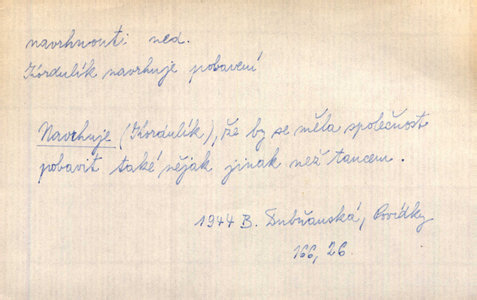 navrhnouti ned.
Kordulík navrhuje pobavení
Navrhuje (Kordulík), že by se měla společnost
pobavit také nějak jinak než tancem.
1944 B. Dubňanská, Povídky
166, 26.